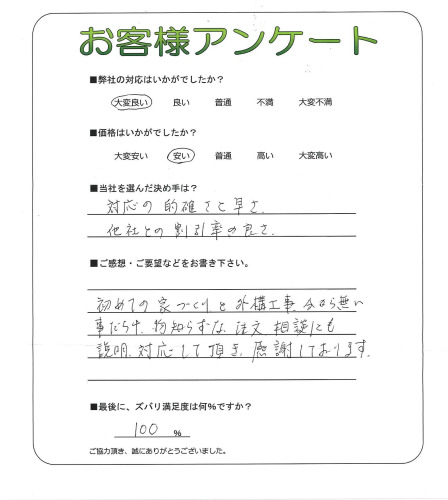 お客様アンケート
■弊社の対応はいかがでしたか？
大変良い 良い 普通 不満 大変不満
■価格はいかがでしたか？
大変安い 安い 普通 高い 大変高い
■当社を選んだ決め手は？
対応の的確さと早さ.
他社との割引率の良さ.
■ご感想・ご要望などをお書き下さい。
初めての家づくりと外構工事.
事だらけ. 物知らずな. 注文 相談にも
説明. 対応して頂き. 感謝しております.
■最後に、ズバリ満足度は何%ですか？
100 %
ご協力頂き、誠にありがとうございました。